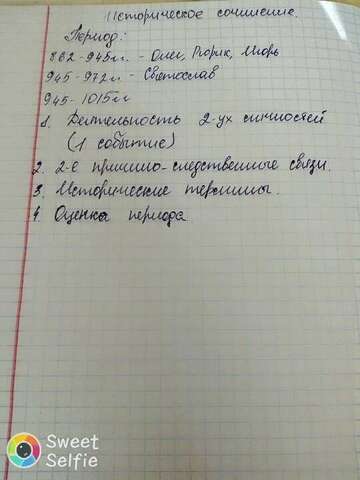 Историческое сочинение.
Период:
862-945гг. - Олег, Рюрик, Игорь
945-972гг - Святослав
945-1015гг
1. Деятельность 2-ух личностей
(1 событие)
2. 2-е причинно-следственные связи.
3. Исторические термины.
4. Оценка периода.
Sweet
Selfie